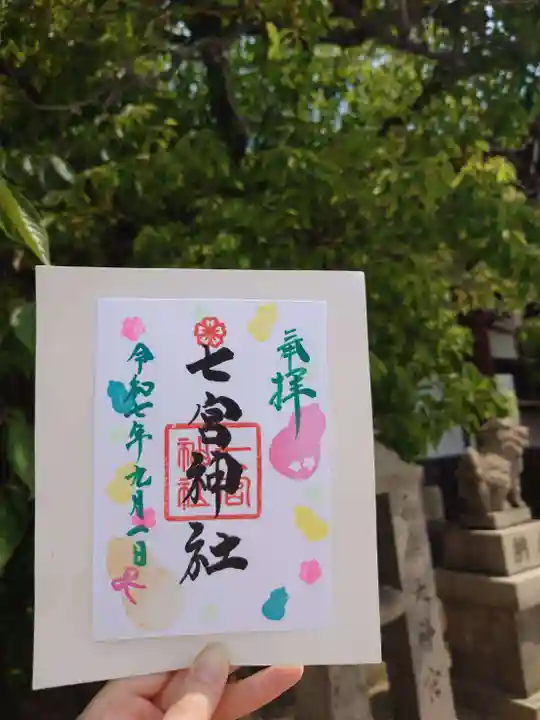 奉拝
七宮神社
七宮
神社
令和七年九月一日